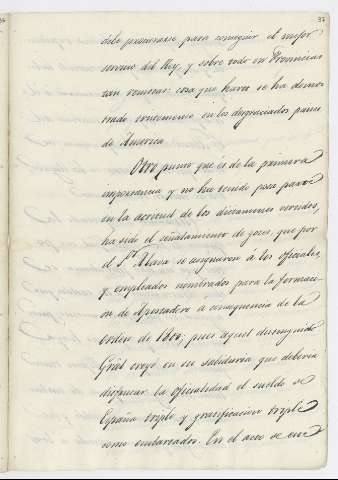 37
debe posesionarse, para conseguir el mejor
servicio del Rey, y sobre todo en Provincias
tan remotas: cosa que harto se ha demos
trado en los desgraciados paises
de America
Otro punto que es de la primera
importancia y no ha tenido poca parte
en la acritud de los dictamenes vertidos,
ha sido el señalamiento de goces, que por
el S.or Alava se asignaron á los oficiales,
y empleados nombrados para la formaci
on de Apostadero a consequencia de la
orden de 1800; pues aquel
Gral creyó en su sabiduria que deberia
disfrutar la oficialidad el sueldo de
España triple y gratificacion triple
como embarcados. En el acto se